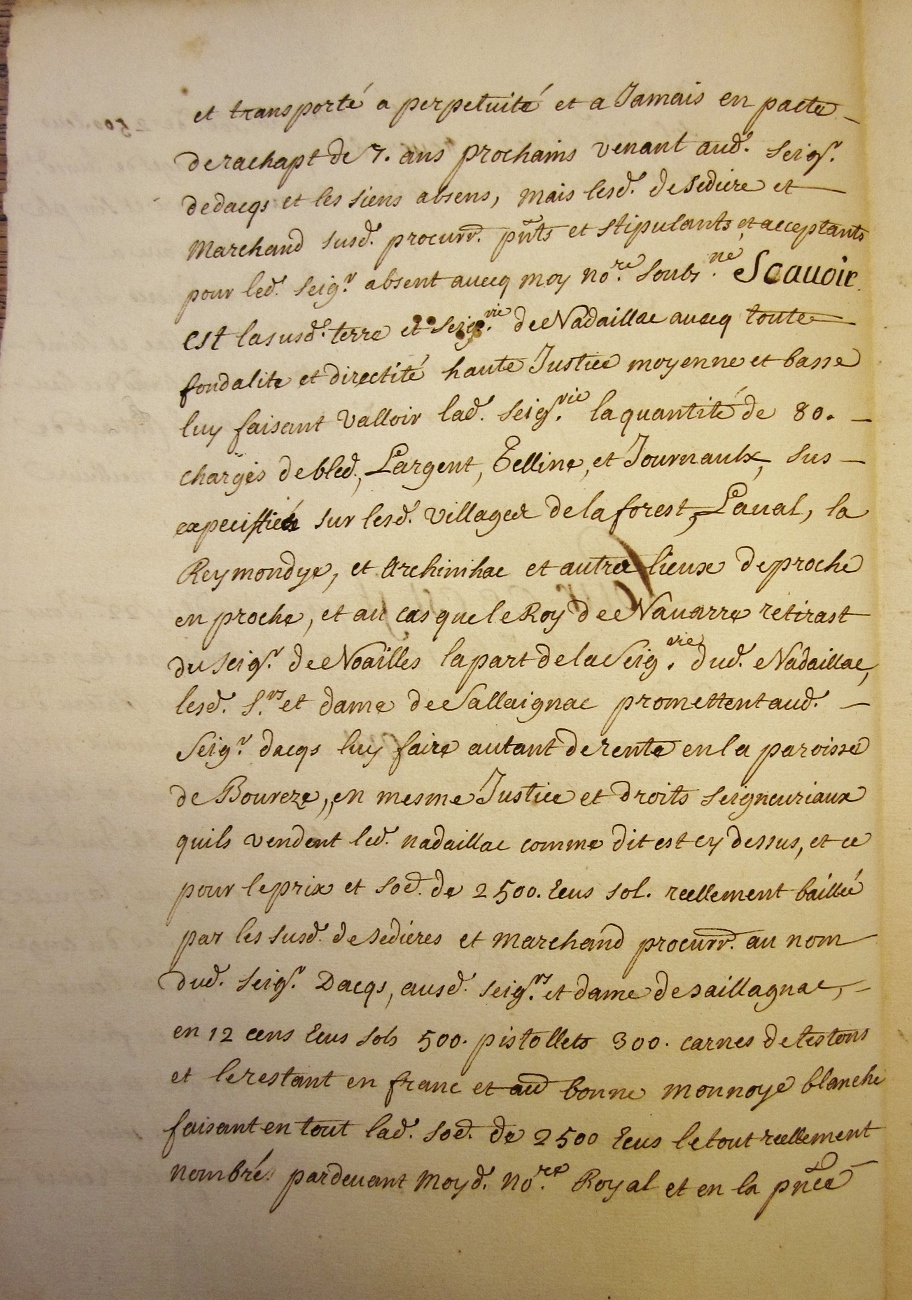 et transporté a perpetuité et a Jamais en pacte
de rachapt de 7. ans prochains venant aud. Seigr.
dedacqs et les siens absens, mais lesd. de Sedière et
Marchand susd. procurr. pnts et stipulants et acceptants
pour led. Seigr. absent avecq moy nore. Soubs.né Scavoir
est la susd. terre et Seigrie. de Nadaillac avecq toute
fondalite et directité haute Justice moyenne et basse
luy faisant Valloir lad. Seigrie. la quantité de 80.
charges de bled, Largent, Gelline, et Journaulx, sus
expeciffiéz sur lesd. villages de la forest, Laval, la
Reymondye, et Archinihac et autres lieux de proche
en proche, et au cas que le Roy de Navarre retirast
du Seigr. de Noailles la part de la Seigrie. dud. Nadaillac,
lesd. Srs. et dame de Sallaignac promettent aud.
Seigr. dacqs luy faire autant de rente en la paroisse
de Boureze, en mesme Justice et droits Seigneuriaux
quils vendent led. nadaillac comme dit est cy dessus, et ce
pour le prix et soē. de 2500. Ecus sol. reellement baillé
par les susd. de sedieres et marchand procurr. au nom
dud. Seigr. Dacqs, ausd. Seigrs. et dame de saillagnac,
en 12 cens Ecus sols 500. pistollets 300. carnes de testons
et le restant en franc et au bonne monnoye blanche
faisant en tout lad. soē. de 2500 Ecus le tout reellement
nombré pardevant Moyd. Nore. Royal et en la pnce